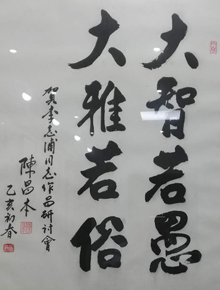 大智若愚
大雅若俗
贺李志浦同志作品研討會
陳昌本
乙亥初春